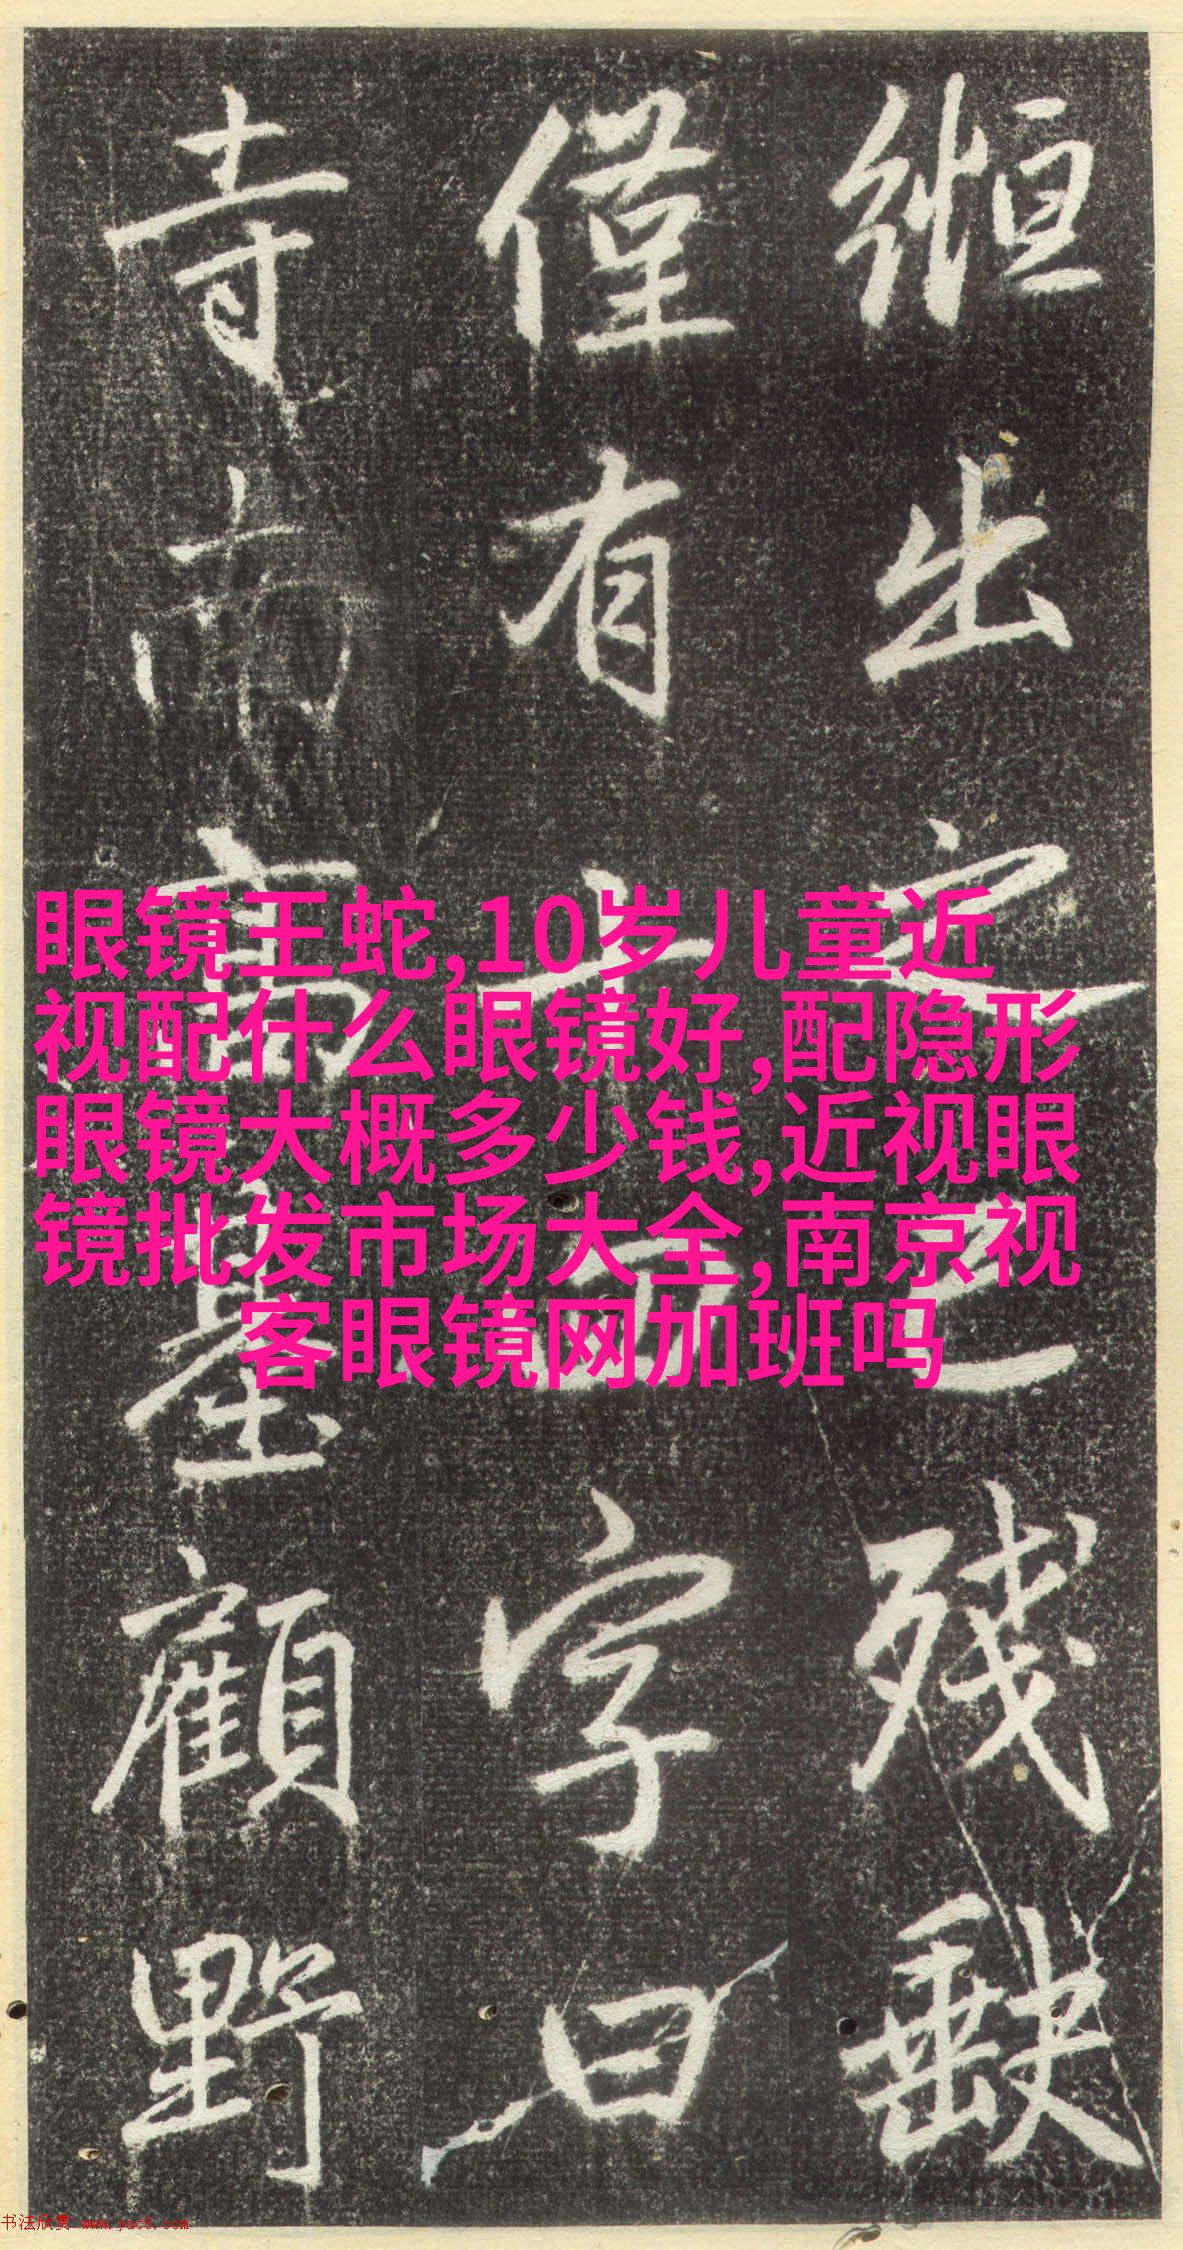 緪出之已残缺
僅有字曰
寺而顧野
眼镜王蛇,10岁儿童近
视配什么眼镜好,配隐形
眼镜大概多少钱,近视眼
镜批发市场大全,南京视
客眼镜网加班吗
书法欣赏 www.yac8.com